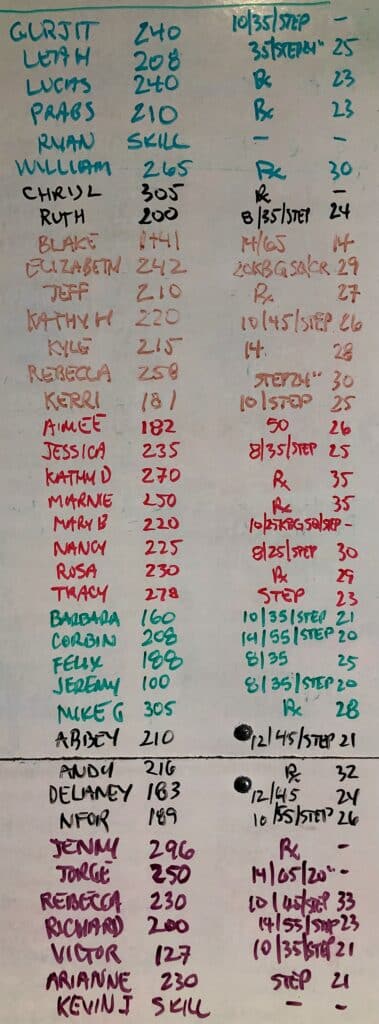 GURJIT 240 10/35/STEP -
LEAH 208 35/STEP24" 25
LUCAS 240 Rx 23
PRABS 210 Rx 23
RYAN SKILL - -
WILLIAM 265 Rx 30
CHRIS L 305 Rx -
RUTH 200 8/35/STEP 24
BLAKE 1+41 14/65 14
ELIZABETH 242 20KBGSQ/CR 29
JEFF 210 Rx 27
KATHY H 220 10/45/STEP 26
KYLE 215 14. 28
REBECCA 258 STEP24" 30
KERRI 181 10/STEP 25
AIMEE 182 50 26
JESSICA 235 8/35/STEP 25
KATHY D 270 Rx 35
MARNIE 250 Rx 35
MARY B 220 10/25KBGSQ/STEP -
NANCY 225 8/25/STEP 30
ROSA 230 Rx 29
TRACY 278 STEP 23
BARBARA 160 10/35/STEP 21
CORBIN 208 14/55/STEP 20
FELIX 188 8/35 25
JEREMY 100 8/35/STEP 20
MIKE G 305 Rx 28
ABBEY 210 12/45/STEP 21
ANDY 216 Rx 32
DELANEY 183 12/45 24
NFOR 189 10/55/STEP 26
JENNY 296 Rx -
JORGE 250 14/65/20" -
REBECCA 230 10/45/STEP 33
RICHARD 200 14/55/STEP 23
VICTOR 127 10/35/STEP 21
ARIANNE 230 STEP 21
KEVIN J SKILL - -